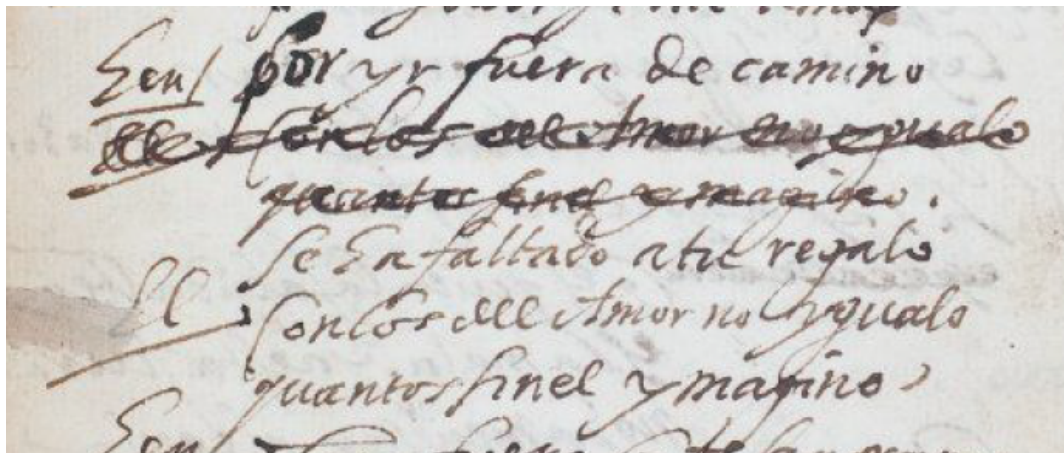 Zen / por yr fuera de camino
El / Con los del Amor no ygualo
quantos sin el ymagino.
se ha faltado a tu regalo
El / Con los del Amor no ygualo
quantos sin el ymagino
Zen